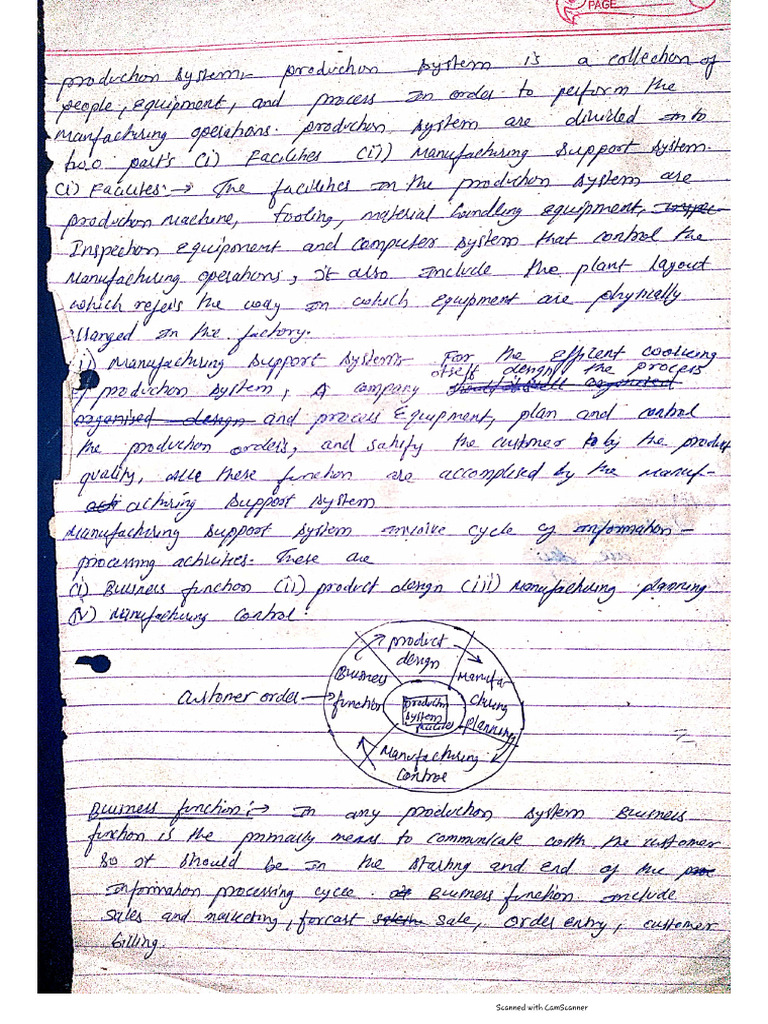 PAGE
production system:- production system is a collection of
people, equipment, and process In order to perform the
Manfacturing operations. production system are divided In to
two part's (i) Facilites (ii) Manufacturing Support system.
(i) Facilites:→ The facilities In the production system are
production Machine, tooling, material handling equipment,
Inspection equipment and computer system that control the
Manufacturing operations, it also Include the plant layout
which refers the way In which equipment are phyically
rranged In the factory.
(ii) Manufacturing Support System:- For the effient
itself design the process
of production system, A company
and process Equipment, plan and control
the production orders, and satify the customer by the product
quality, all these function are accomplised by the Manuf-
acturing Support System
Manufacturing Support System Involve cycle of Information-
processing activities. These are
(i) Business function (ii) product design (iii) Manufacturing planning
(iv) Manufacturing Control.
product
design
Business
function
Manufa-
cturing
planning
Customer order
production
system
facilites
Manufacturing
Control
Business function:→ In any production system Business
function is the primarily means to communicate with the customer
So it should be In the starting and end of the
Information processing cycle. Business function Include
Sales and marketing, forcast sale, order entry, customer
billing.
Scanned with CamScanner